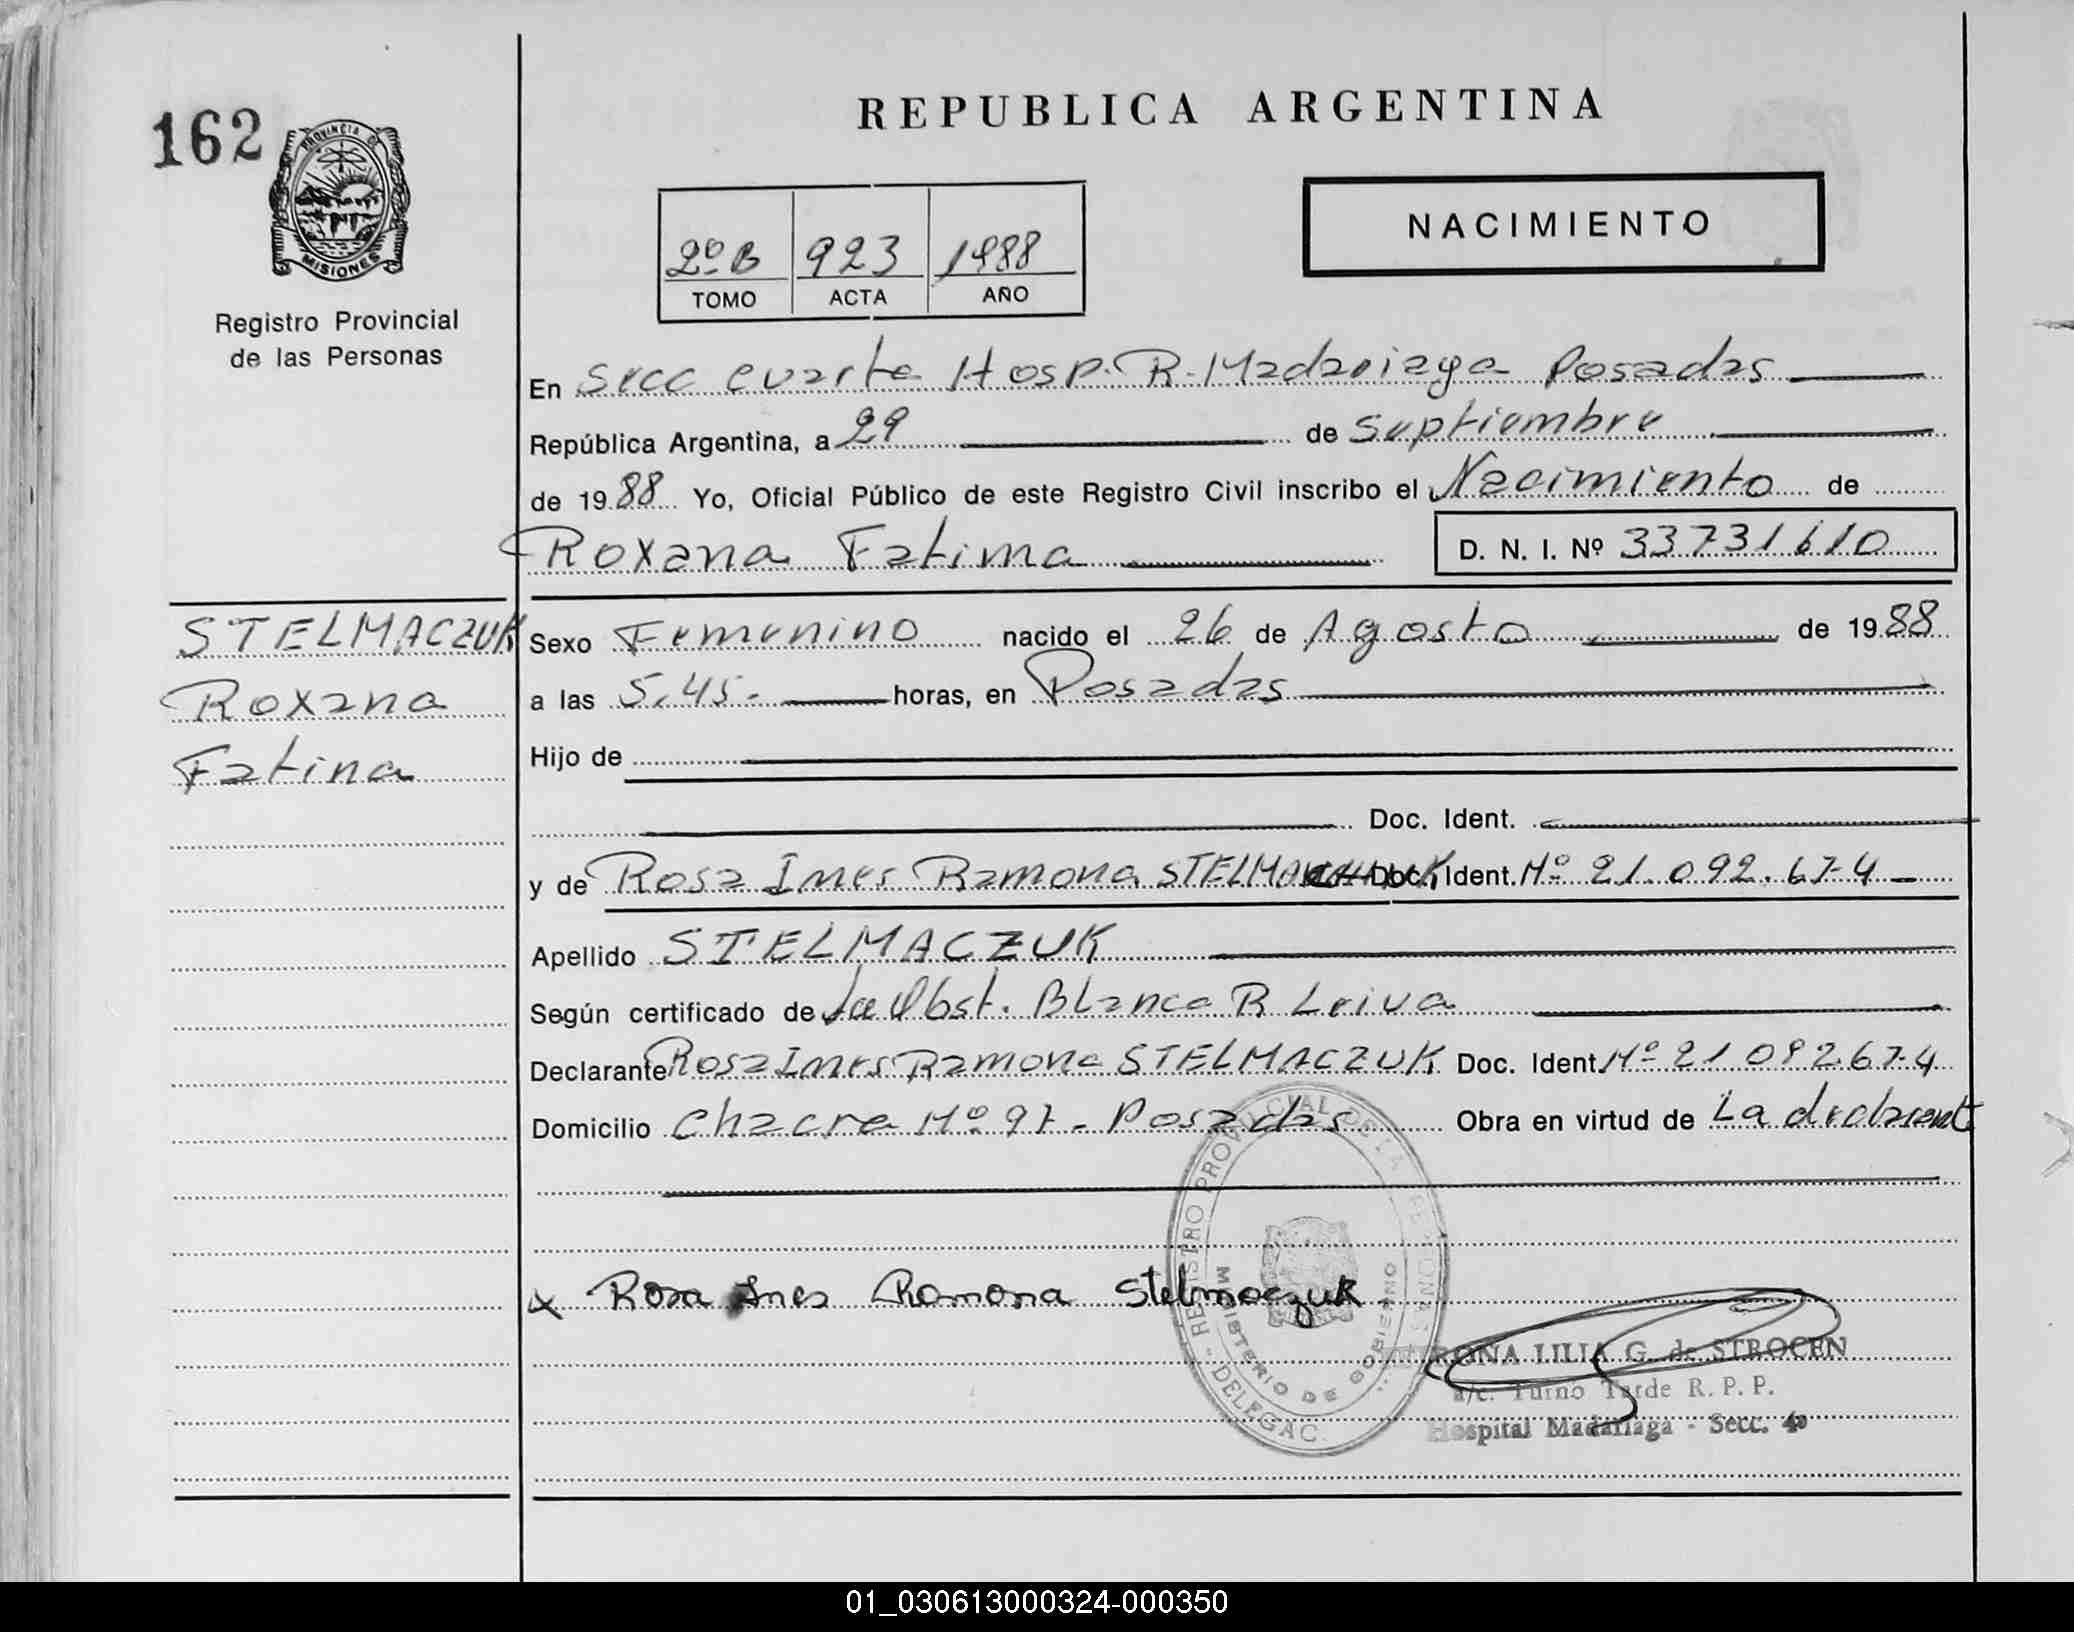 REPUBLICA ARGENTINA
162
PROVINCIA DE
MISIONES
Registro Provincial
de las Personas
NACIMIENTO
2º B 923 1988
TOMO ACTA AÑO
En Secc cuarta Hosp. R. Madariaga Posadas
República Argentina, a 29 de Septiembre
de 1988 Yo, Oficial Público de este Registro Civil inscribo el Nacimiento de
Roxana Fatima D. N. I. Nº 33731610
STELMACZUK
Roxana
Fatina
Sexo Femenino nacido el 26 de Agosto de 1988
a las 5,45.- horas, en Posadas
Hijo de
Doc. Ident.
y de Rosa Ines Ramona Doc. Ident. Nº 21.092.674
Apellido STELMACZUK
Según certificado de la Obst. Blanca R Leiva
Declarante Rosa Ines Ramona STELMACZUK Doc. Ident. Nº 21092674
Domicilio Chacra Nº 97 - Posadas Obra en virtud de La
x Rosa Ines Ramona Stelmaczuk
REGISTRO PROVINCIAL DE LAS PERSONAS - DELEGAC.
MINISTERIO DE GOBIERNO
LILIA G. de STROCEN
a/c. Turno Tarde R. P. P.
Hospital Madariaga - Secc. 4º
01_030613000324-000350